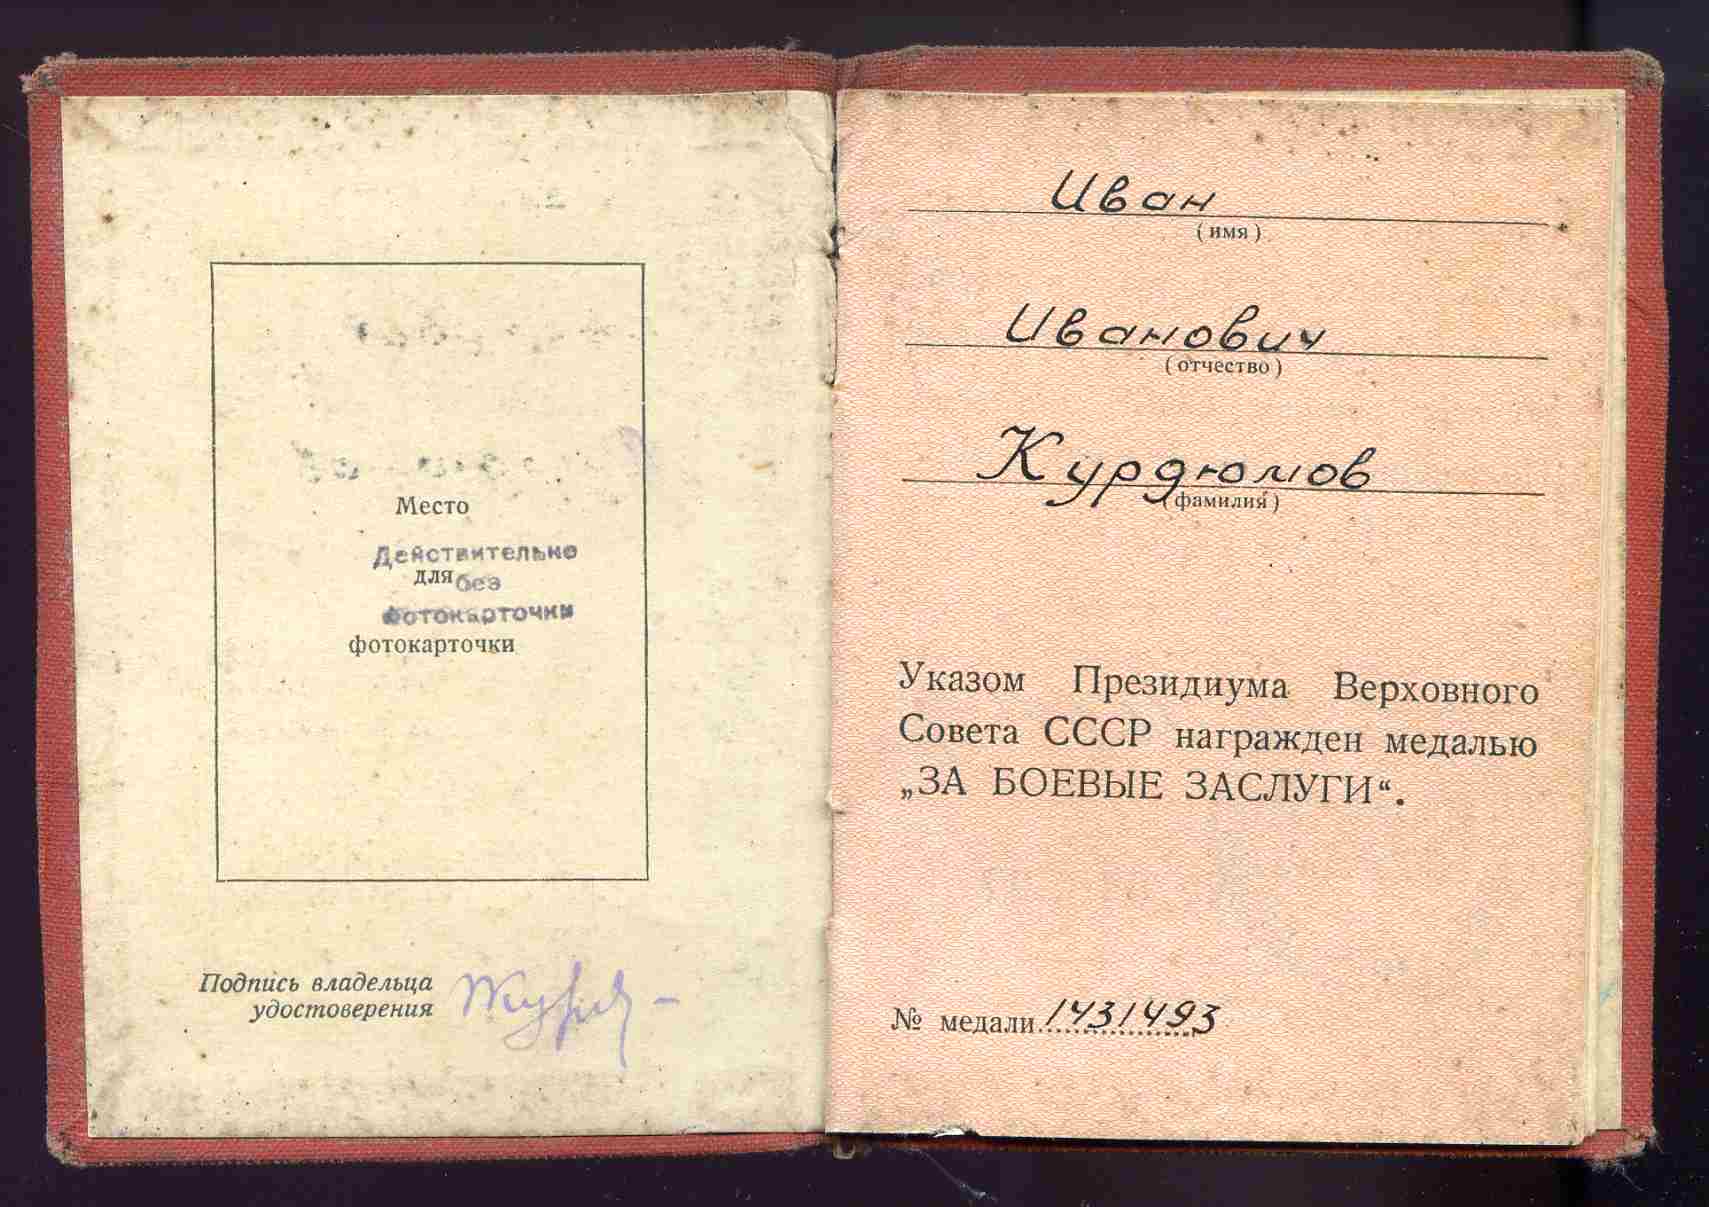 Место
Действительно
для без
фотокарточки
фотокарточки
Подпись владельца
удостоверения
Иван
(имя)
Иванович
(отчество)
Курдюмов
(фамилия)
Указом Президиума Верховного
Совета СССР награжден медалью
„ЗА БОЕВЫЕ ЗАСЛУГИ“.
№ медали 1431493